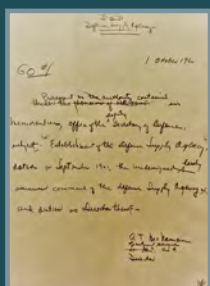 DSA
Defense Supply Agency
1 October 1961
GO #1
Pursuant to the authority contained
Under the provisions of
deputy
memorandum, office of the Secretary of Defense,
subject, "Establishment of the Defense Supply Agency,"
dated September 1961, the undersigned hereby
assumes command of the Defense Supply Agency
and duties as Director thereof.
Director